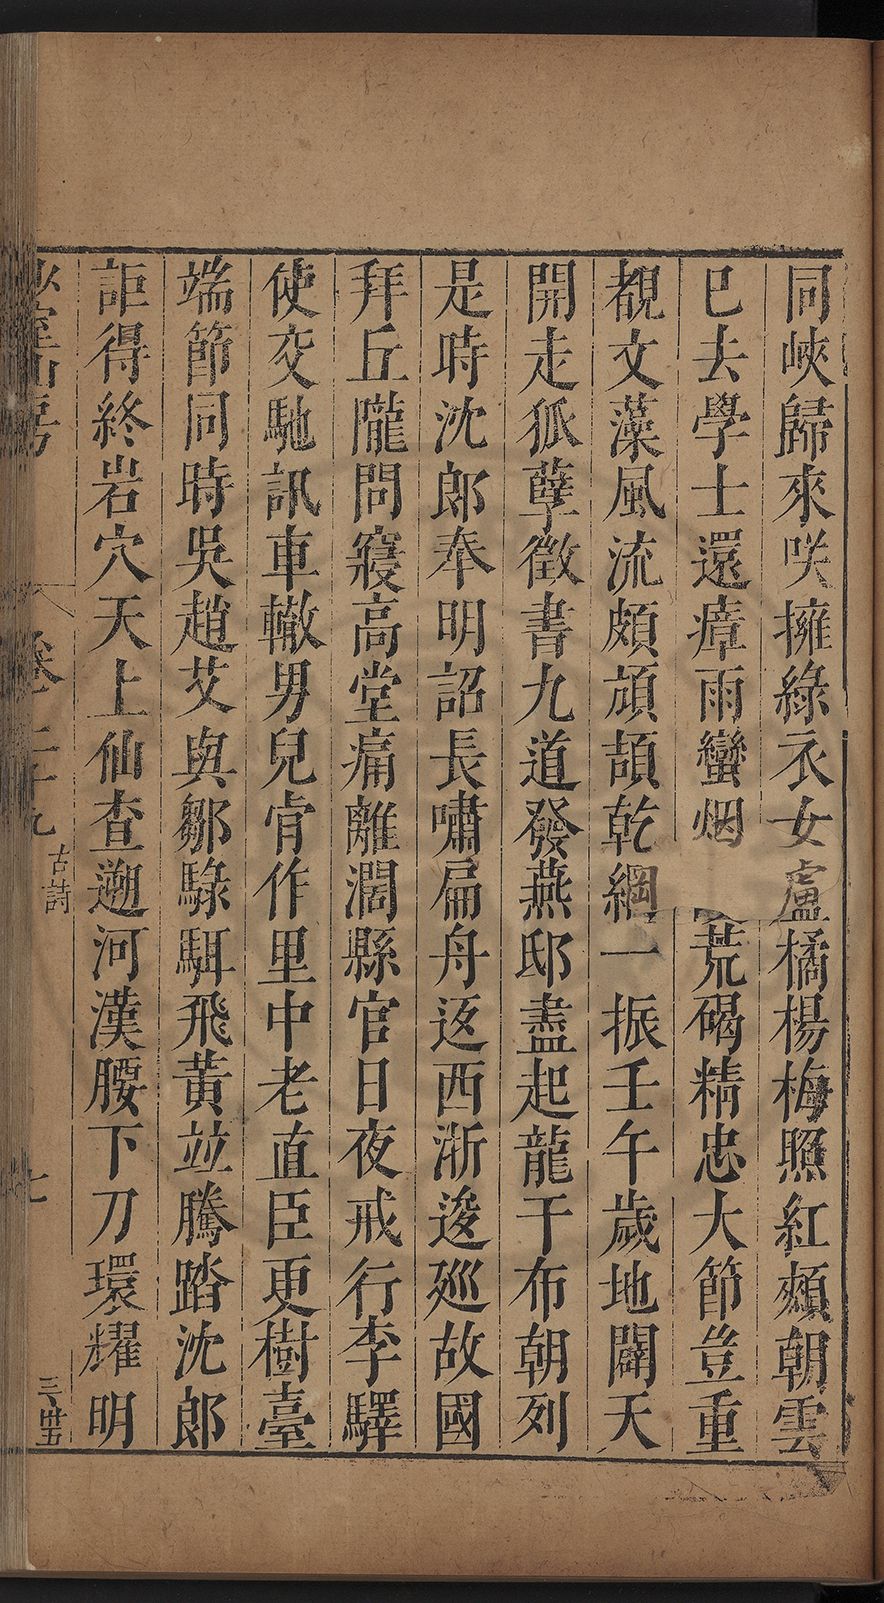 同峽歸來咲擁綠衣女盧橘楊梅照紅頰朝雲
已去學士還瘴雨蠻烟荒碣精忠大節豈重
覩文藻風流頗頏頡乾綱一振壬午歲地闢天
開走狐孽徵書九道發燕邸盡起龍干布朝列
是時沈郎奉明詔長嘯扁舟返西浙逡廵故國
拜丘隴問寢高堂痛離濶縣官日夜戒行李驛
使交馳訊車轍男兒肯作里中老直臣更樹臺
端節同時吳趙艾與鄒騄駬飛黃竝騰踏沈郎
詎得終岩穴天上仙查遡河漢腰下刀環耀明
山房
卷之二十九
古詩
七
三卌五